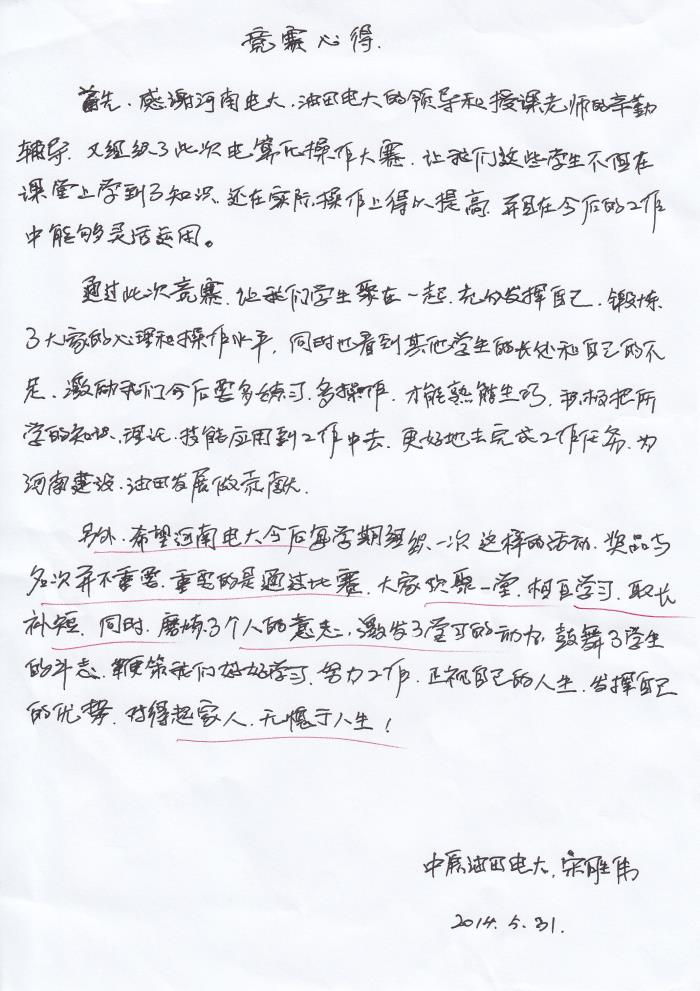 竞赛心得.
首先、感谢河南电大、油田电大的领导和授课老师的辛勤
辅导、又组织了此次电算化操作大赛、让我们这些学生不但在
课堂上学到了知识、还在实际操作上得以提高、并且在今后的工作
中能够灵活运用。
通过此次竞赛、让我们学生聚在一起、充分发挥自己、锻炼
了大家的心理和操作水平，同时也看到其他学生的长处和自己的不
足、激励我们今后要多练习、多操作、才能熟能生巧，积极把所
学的知识、理论、技能应用到工作中去、更好地去完成工作任务、为
河南建设、油田发展做贡献.
另外、希望河南电大今后每学期组织一次这样的活动、奖品与
名次并不重要、重要的是通过比赛、大家欢聚一堂、相互学习、取长
补短、同时、磨炼了个人的意志、激发了学习的动力、鼓舞了学生
的斗志、鞭策我们好好学习、努力工作、正视自己的人生、发挥自己
的优势、对得起家人、无愧于人生！
中原油田电大、宋胜伟
2014.5.31.